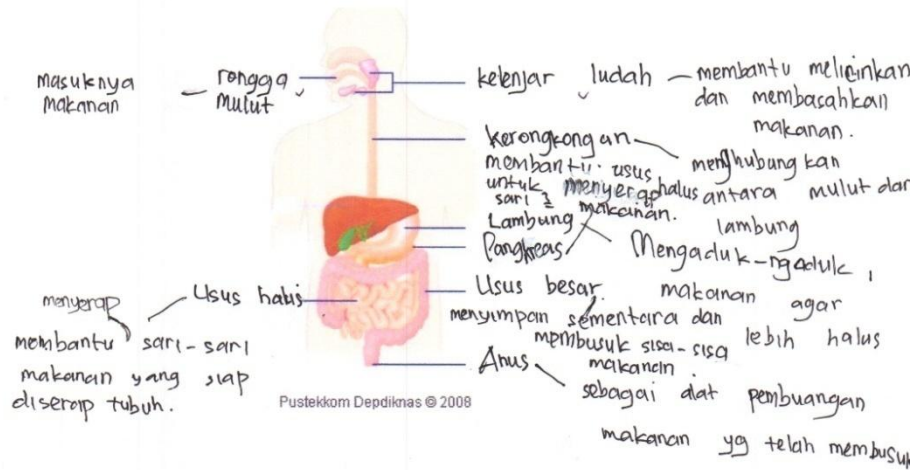 masuknya
makanan
rongga
mulut
kelenjar ludah
membantu melicinkan
dan membasahkan
makanan.
Kerongkongan
menghubungkan
antara mulut dan
lambung
membantu usus
halus
untuk menyerap
sari 2
makanan.
Lambung
Mengaduk-ngaduk
makanan agar
lebih halus
Pangkreas
Usus halus
menyerap
membantu sari-sari
makanan yang siap
diserap tubuh.
Usus besar.
menyimpan sementara dan
membusuk sisa-sisa
makanan.
Anus
sebagai alat pembuangan
makanan yg telah membusuk
Pustekkom Depdiknas © 2008